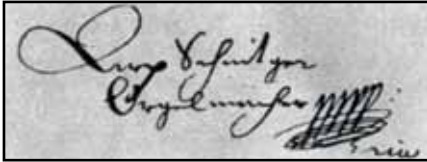 Arp Schnitger
Orgelmacher